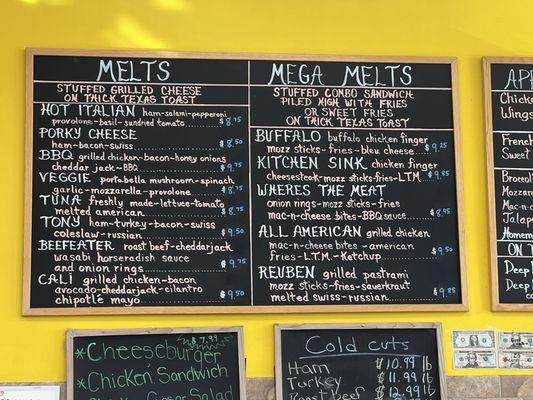 MELTS
STUFFED GRILLED CHEESE
ON THICK TEXAS TOAST
HOT ITALIAN ham-salami-pepperoni
provolone-basil-sundried tomato $8.75
PORKY CHEESE
ham-bacon-swiss $8.50
BBQ grilled chicken-bacon-honey onions
cheddar jack-BBQ $9.75
VEGGIE portabella mushroom-spinach
garlic-mozzarella-provolone $8.75
TUNA freshly made-lettuce-tomato
melted american $8.75
TONY ham-turkey-bacon-swiss
coleslaw-russian $9.50
BEEFEATER roast beef-cheddarjack
wasabi horseradish sauce
and onion rings $9.75
CALI grilled chicken-bacon
avocado-cheddarjack-cilantro
chipotle mayo $9.50
MEGA MELTS
STUFFED COMBO SANDWICH
PILED HIGH WITH FRIES
OR SWEET FRIES
ON THICK TEXAS TOAST
BUFFALO buffalo chicken finger
mozz sticks-fries-bleu cheese $9.25
KITCHEN SINK chicken finger
cheesesteak-mozz sticks-fries-L.T.M. $9.85
WHERES THE MEAT
onion rings-mozz sticks-fries
mac-n-cheese bites-BBQ sauce $8.95
ALL AMERICAN grilled chicken
mac-n-cheese bites-american
fries-L.T.M.-Ketchup $9.50
REUBEN grilled pastrami
mozz sticks-fries-sauerkraut
melted swiss-russian $9.85
AP
Chicken
Wings
French
Sweet
Broccol
Mozzare
Mac-n
Jalape
Homem
ON T
Deep
Deep
$7.99
*Cheeseburger
*Chicken Sandwich
Salad
Cold cuts
Ham $10.99 lb
Turkey $11.99 lb
Roast beef $12.99 lb